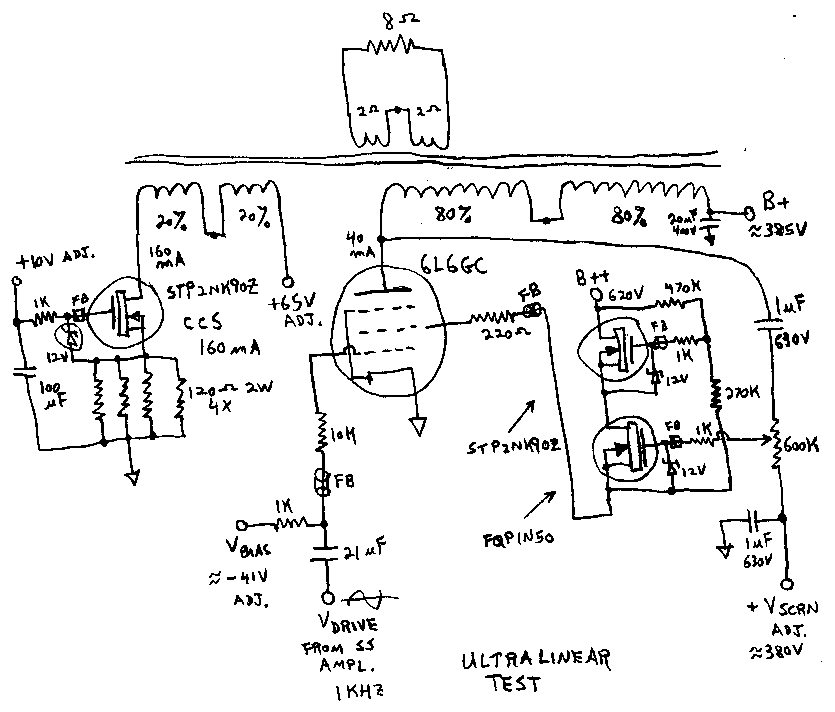 8Ω
2Ω 2Ω
20% 20%
80% 80%
20µF
400V
B+
≈385V
+10V ADJ.
160
mA
40
mA
6L6GC
1K
FB
STP2NK90Z
+65V
ADJ.
CCS
160mA
12V
100
µF
120Ω 2W
4X
220Ω
FB
B++
620V
470K
FB
1K
12V
1µF
630V
270K
10K
FB
1K
12V
600K
STP2NK90Z
FQP1N50
FB
1K
VBIAS
≈-41V
ADJ.
21µF
VDRIVE
FROM SS
AMPL.
1KHZ
1µF
630V
+VSCRN
ADJ.
≈380V
ULTRALINEAR
TEST